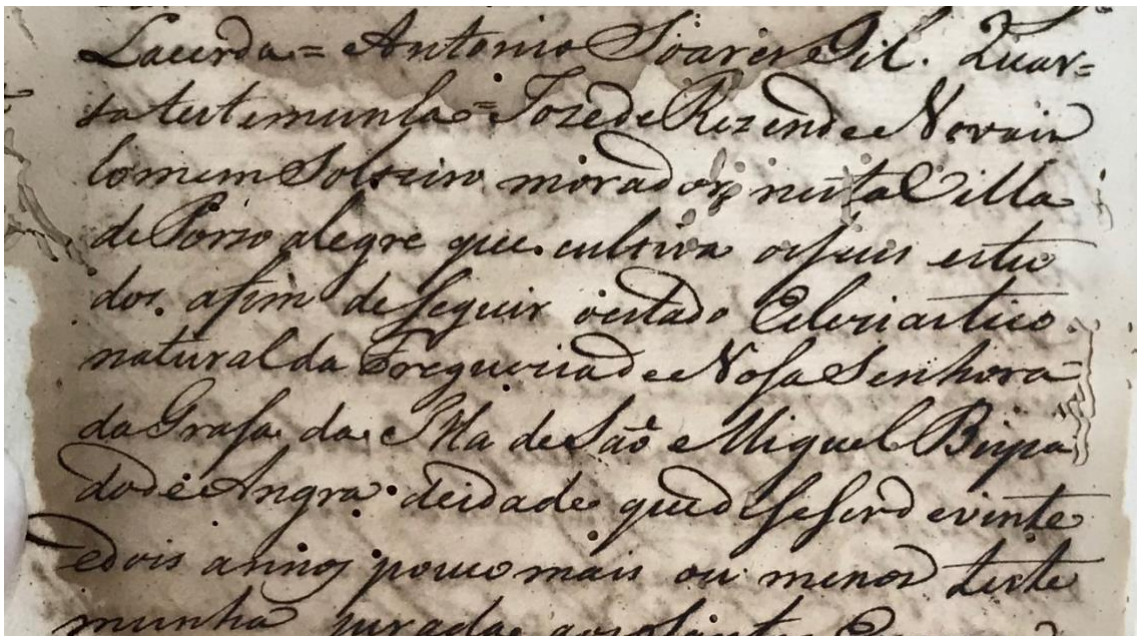 Lacerda = Antonio Soares Gil. Quar=
ta testemunha = Joze de Rezende Novais
homem Solteiro morador nesta Villa
de Porto alegre que cultiva os seus estu
dos afim de seguir o estado Eclesiastico
natural da Freguezia de Nosa Senhora
da Grasa da Ilha de São Miguel Bispa
do de Angra de idade que disse ser de vinte
e dois annos pouco mais ou menos teste
munha jurada aos Santos